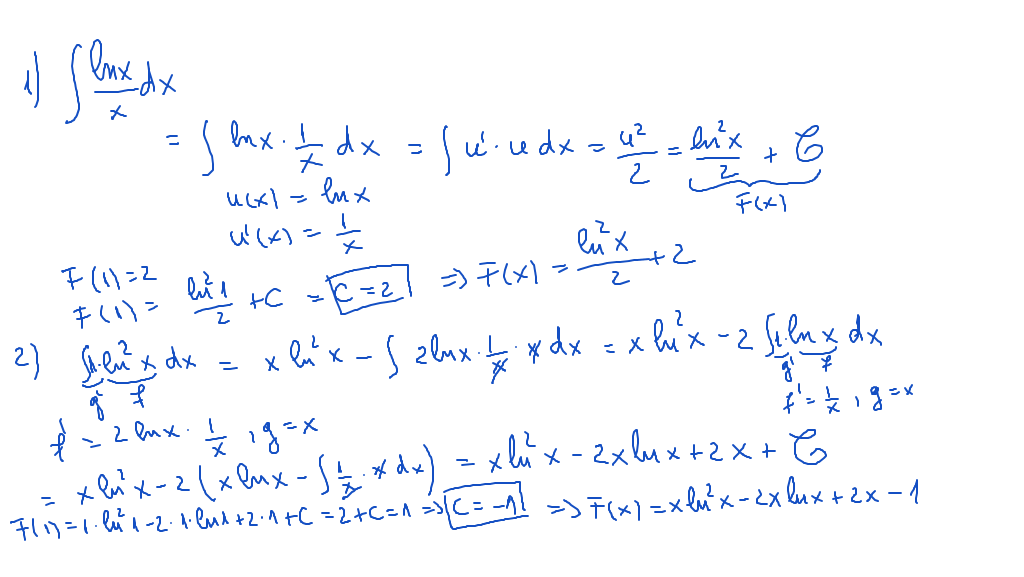 1) ∫ lnx/x dx
= ∫ lnx · 1/x dx = ∫ u' · u dx = u²/2 = ln²x/2 + C
u(x) = lnx
F(x)
u'(x) = 1/x
F(1)=2
F(1) = ln²1/2 + C = C=2 => F(x) = ln²x/2 + 2
2) ∫1·ln²x dx = x ln²x − ∫ 2lnx · 1/x · x dx = x ln²x − 2 ∫1·lnx dx
g' f g' f
f' = 1/x , g=x
f' = 2lnx · 1/x , g=x
= x ln²x − 2(x lnx − ∫ 1/x · x dx) = x ln²x − 2x lnx + 2x + C
F(1) = 1·ln²1 − 2·1·ln1 + 2·1 + C = 2+C = 1 => C = −1 => F(x) = x ln²x − 2x lnx + 2x − 1